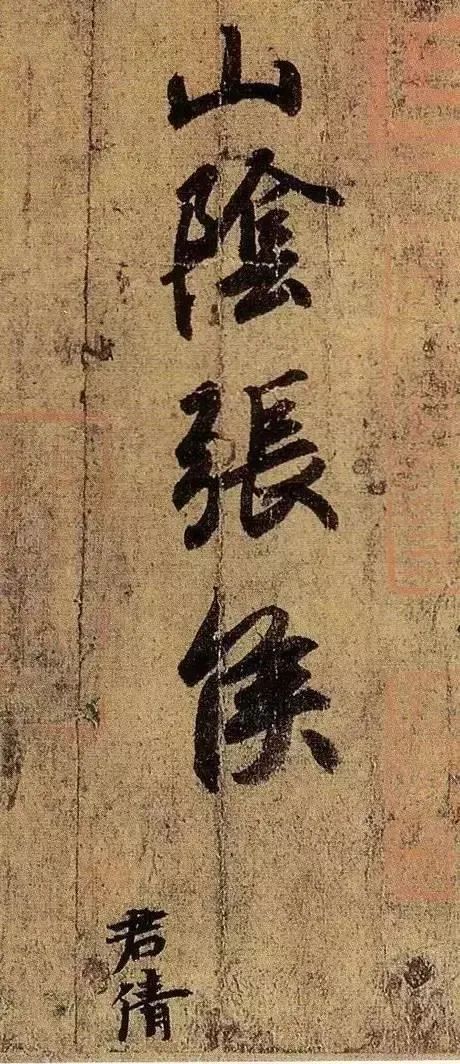 山陰張侯
君倩